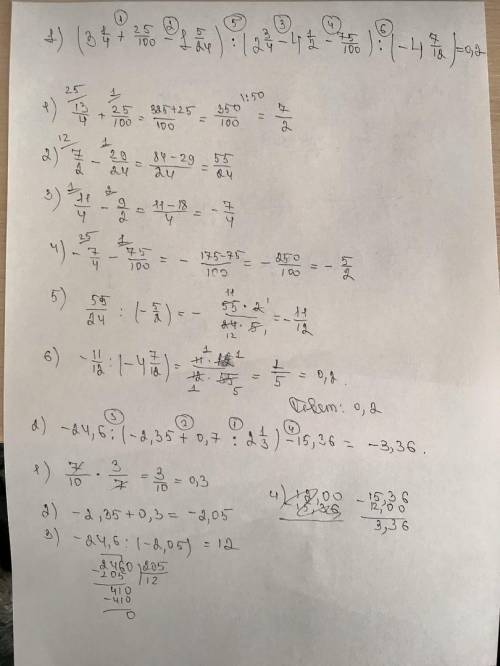 1) (3 1/4 + 25/100 - 1 5/24) : (2 3/4 - 4 1/2 - 75/100) : (-4 7/12) = 0,2
1 2 5 3 4 6
1) 13/4 + 25/100 = 325+25/100 = 350/100 = 7/2
25 1 1:50
2) 7/2 - 29/24 = 84-29/24 = 55/24
12 1
3) 11/4 - 9/2 = 11-18/4 = -7/4
1 2
4) -7/4 - 75/100 = - 175-75/100 = - 250/100 = - 5/2
25 1
5) 55/24 : (-5/2) = - 55·2/24·5 = - 11/12
11 1 12 1
6) -11/12 : (-4 7/12) = 11·12/12·55 = 1/5 = 0,2.
1 1 1 5
Ответ: 0,2
2) -24,6 : (-2,35 + 0,7 : 2 1/3) - 15,36 = -3,36.
3 2 1 4
1) 7/10 · 3/7 = 3/10 = 0,3
2) -2,35 + 0,3 = -2,05
3) -24,6 : (-2,05) = 12
2460 205
- 205 12
410
- 410
0
4) 12,00
15,36
- 15,36
12,00
3,36